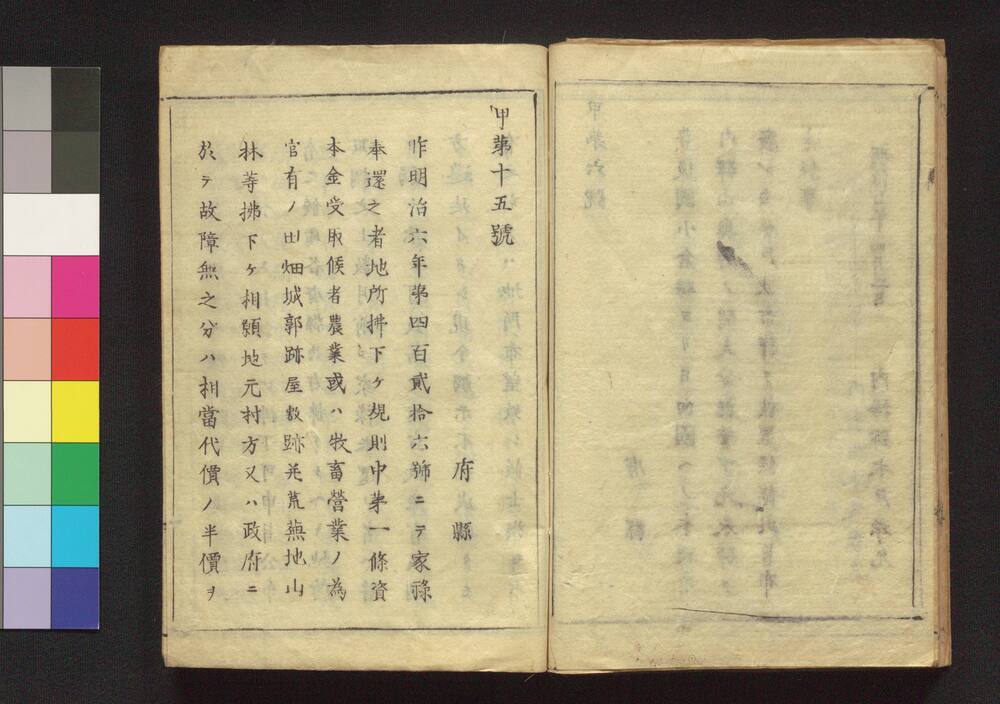 甲第十五號
府縣
昨明治六年第四百貳拾六號ニテ家祿
奉還之者地所拂下ケ規則中第一條資
本金受取候者農業或ハ牧畜營業ノ為
官有ノ田畑城郭跡屋敷跡并荒蕪地山
林等拂下ケ相願地元村方又ハ政府ニ
於テ故障無之分ハ相當代價ノ半價ヲ